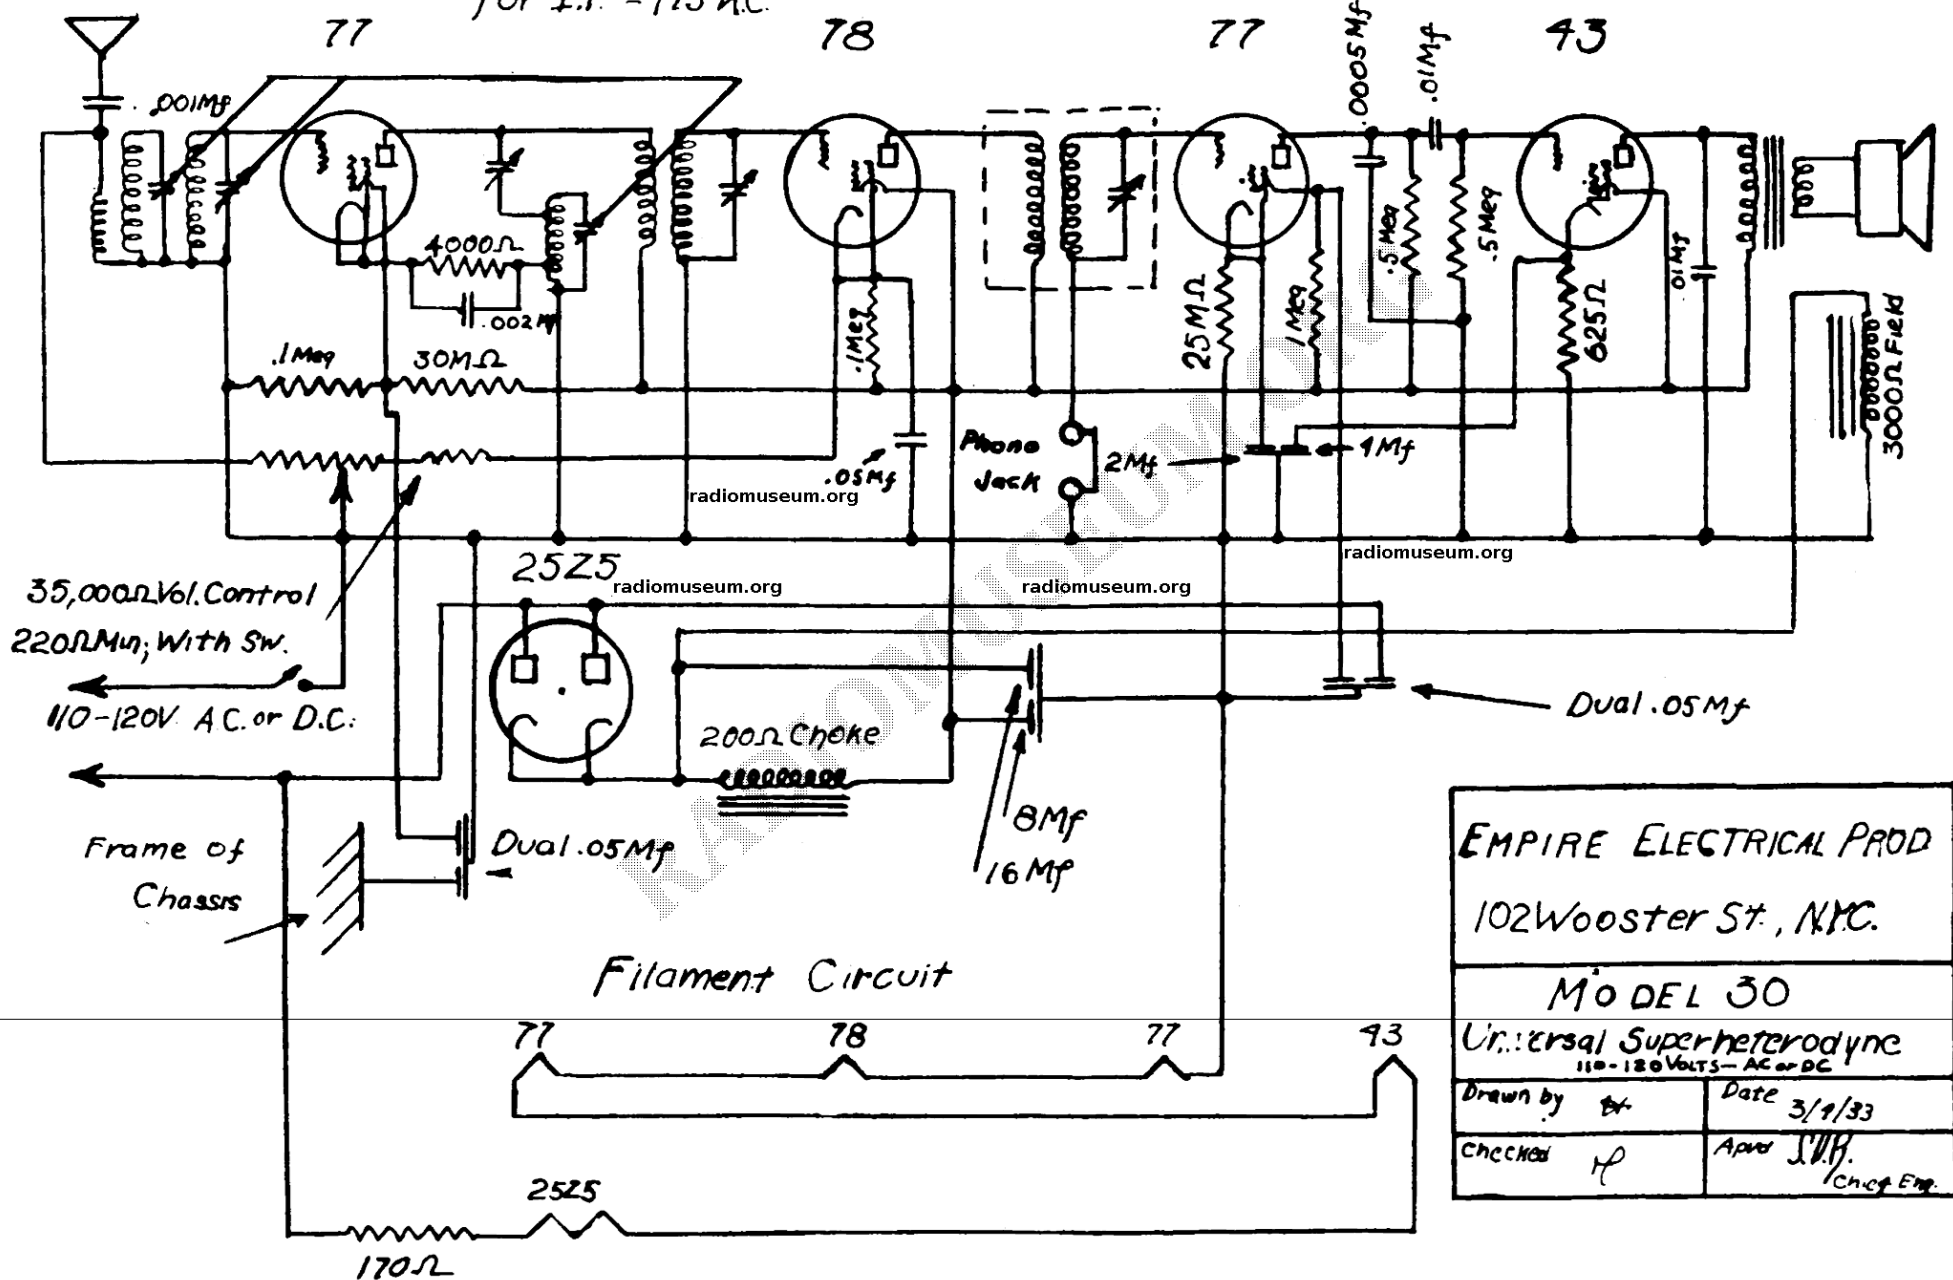 for I.F. = 175 K.C.
77
78
77
43
.001Mf
.0005Mf
.01Mf
4000Ω
.002Mf
.1Meg
30MΩ
.1Meg
25MΩ
1Meg
.5Meg
.5Meg
625Ω
.01Mf
3000Ω Field
.05Mf
Phono
Jack
2Mf
4Mf
radiomuseum.org
radiomuseum.org
radiomuseum.org
radiomuseum.org
RADIOMUSEUM.ORG
25Z5
35,000Ω Vol. Control
220Ω Min; With Sw.
110-120V. A.C. or D.C.
200Ω Choke
Dual .05Mf
8Mf
16Mf
Frame of
Chassis
Dual .05Mf
Filament Circuit
77
78
77
43
25Z5
170Ω
EMPIRE ELECTRICAL PROD
102 Wooster St., N.Y.C.
MODEL 30
Universal Superheterodyne
110-120 VOLTS - AC or DC
Drawn by
Date 3/9/33
Checked
Apvd J.V.R.
Chief Eng.